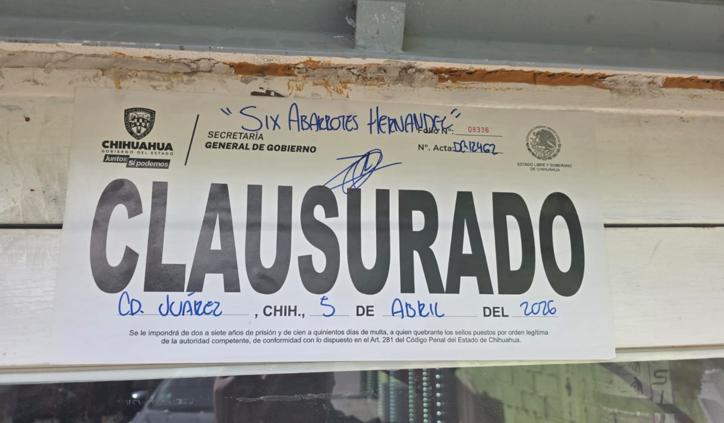 "SIX ABARROTES HERNANDEZ"
CHIHUAHUA
GOBIERNO DEL ESTADO
Juntos Sí podemos
SECRETARÍA
GENERAL DE GOBIERNO
Folio N°. 08336
N°. Acta: DG-12462
ESTADO LIBRE Y SOBERANO
DE CHIHUAHUA
CLAUSURADO
CD. JUÁREZ, CHIH., 5 DE ABRIL DEL 2026
Se le impondrá de dos a siete años de prisión y de cien a quinientos días de multa, a quien quebrante los sellos puestos por orden legítima
de la autoridad competente, de conformidad con lo dispuesto en el Art. 281 del Código Penal del Estado de Chihuahua.